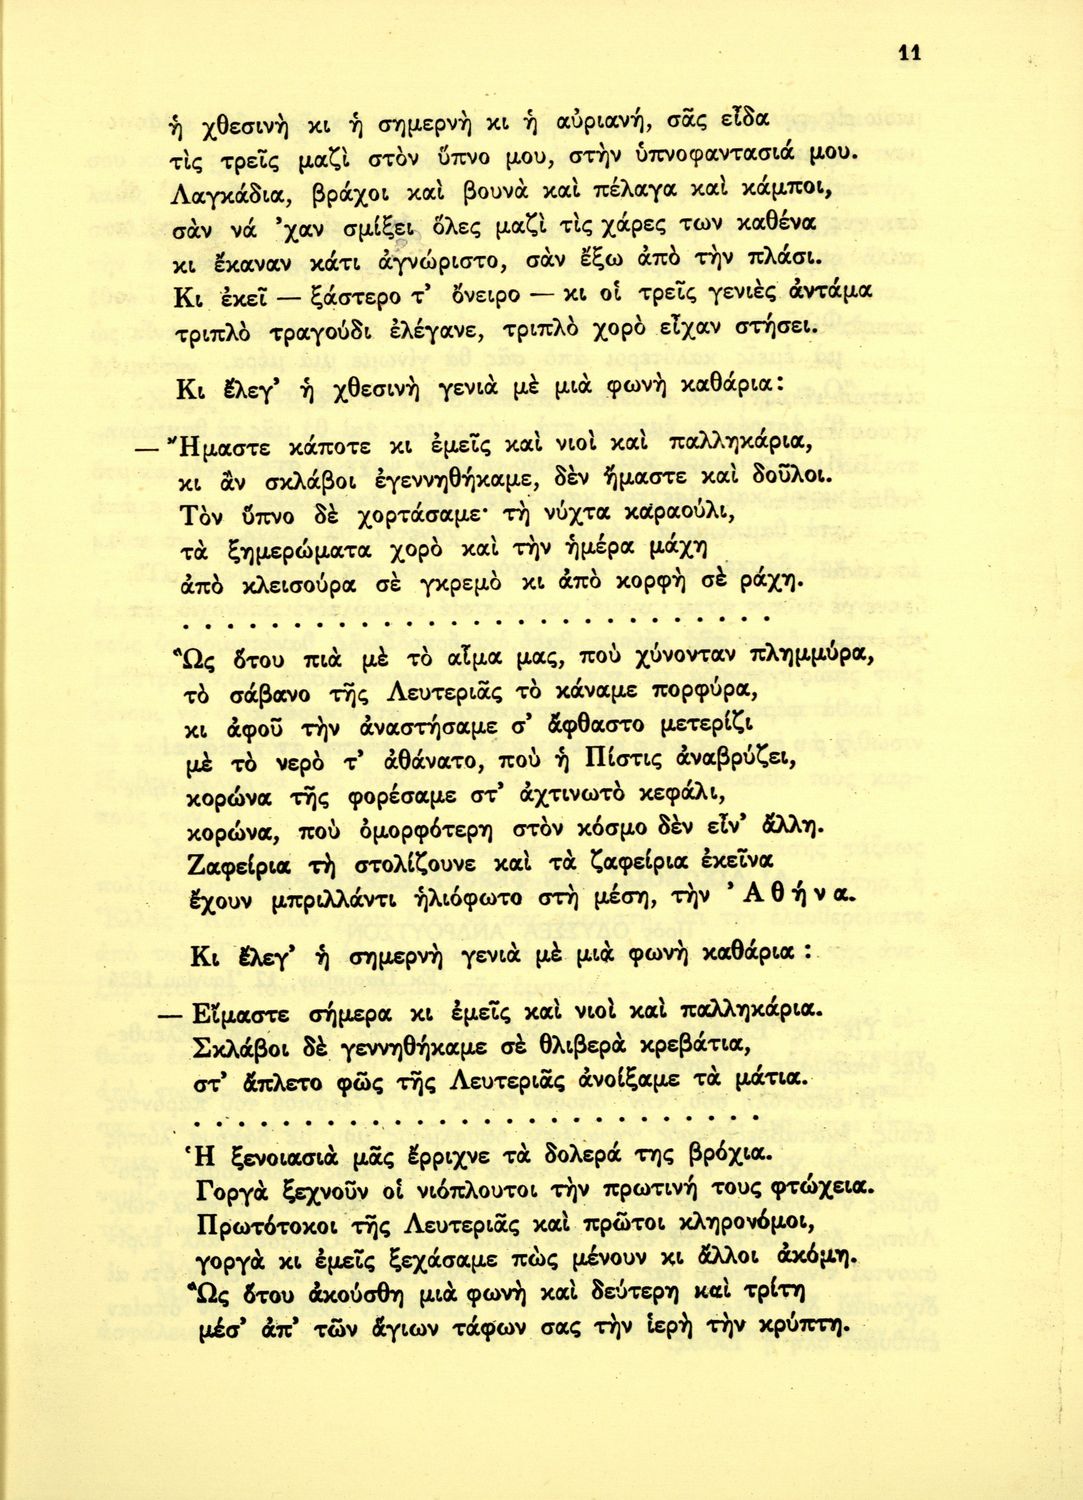 11
ἡ χθεσινὴ κι ἡ σημερνὴ κι ἡ αὐριανή, σᾶς εἶδα
τὶς τρεῖς μαζὶ στὸν ὕπνο μου, στὴν ὑπνοφαντασιά μου.
Λαγκάδια, βράχοι καὶ βουνὰ καὶ πέλαγα καὶ κάμποι,
σὰν νά ’χαν σμίξει ὅλες μαζὶ τὶς χάρες των καθένα
κι ἔκαναν κάτι ἀγνώριστο, σὰν ἔξω ἀπὸ τὴν πλάσι.
Κι ἐκεῖ — ξάστερο τ’ ὄνειρο — κι οἱ τρεῖς γενιὲς ἀντάμα
τριπλὸ τραγούδι ἐλέγανε, τριπλὸ χορὸ εἶχαν στήσει.
Κι ἔλεγ’ ἡ χθεσινὴ γενιὰ μὲ μιὰ φωνὴ καθάρια:
— Ἤμαστε κάποτε κι ἐμεῖς καὶ νιοὶ καὶ παλληκάρια,
κι ἂν σκλάβοι ἐγεννηθήκαμε, δὲν ἤμαστε καὶ δοῦλοι.
Τὸν ὕπνο δὲ χορτάσαμε· τὴ νύχτα καραούλι,
τὰ ξημερώματα χορὸ καὶ τὴν ἡμέρα μάχη
ἀπὸ κλεισούρα σὲ γκρεμὸ κι ἀπὸ κορφὴ σὲ ράχη.
. . . . . . . . . . . . . . . . . . . . . . . . . . .
Ὣς ὅτου πιὰ μὲ τὸ αἷμα μας, ποὺ χύνονταν πλημμύρα,
τὸ σάβανο τῆς Λευτεριᾶς τὸ κάναμε πορφύρα,
κι ἀφοῦ τὴν ἀναστήσαμε σ’ ἄφθαστο μετερίζι
μὲ τὸ νερὸ τ’ ἀθάνατο, ποὺ ἡ Πίστις ἀναβρύζει,
κορώνα τῆς φορέσαμε στ’ ἀχτινωτὸ κεφάλι,
κορώνα, ποὺ ὀμορφότερη στὸν κόσμο δὲν εἶν’ ἄλλη.
Ζαφείρια τὴ στολίζουνε καὶ τὰ ζαφείρια ἐκεῖνα
ἔχουν μπριλλάντι ἡλιόφωτο στὴ μέση, τὴν ’Αθήνα.
Κι ἔλεγ’ ἡ σημερνὴ γενιὰ μὲ μιὰ φωνὴ καθάρια :
— Εἴμαστε σήμερα κι ἐμεῖς καὶ νιοὶ καὶ παλληκάρια.
Σκλάβοι δὲ γεννηθήκαμε σὲ θλιβερὰ κρεβάτια,
στ’ ἄπλετο φῶς τῆς Λευτεριᾶς ἀνοίξαμε τὰ μάτια.
. . . . . . . . . . . . . . . . . . . . . . . . . . .
Ἡ ξενοιασιὰ μᾶς ἔρριχνε τὰ δολερά της βρόχια.
Γοργὰ ξεχνοῦν οἱ νιόπλουτοι τὴν πρωτινή τους φτώχεια.
Πρωτότοκοι τῆς Λευτεριᾶς καὶ πρῶτοι κληρονόμοι,
γοργὰ κι ἐμεῖς ξεχάσαμε πὼς μένουν κι ἄλλοι ἀκόμη.
Ὣς ὅτου ἀκούσθη μιὰ φωνὴ καὶ δεύτερη καὶ τρίτη
μέσ’ ἀπ’ τῶν ἅγιων τάφων σας τὴν ἱερὴ τὴν κρύπτη.